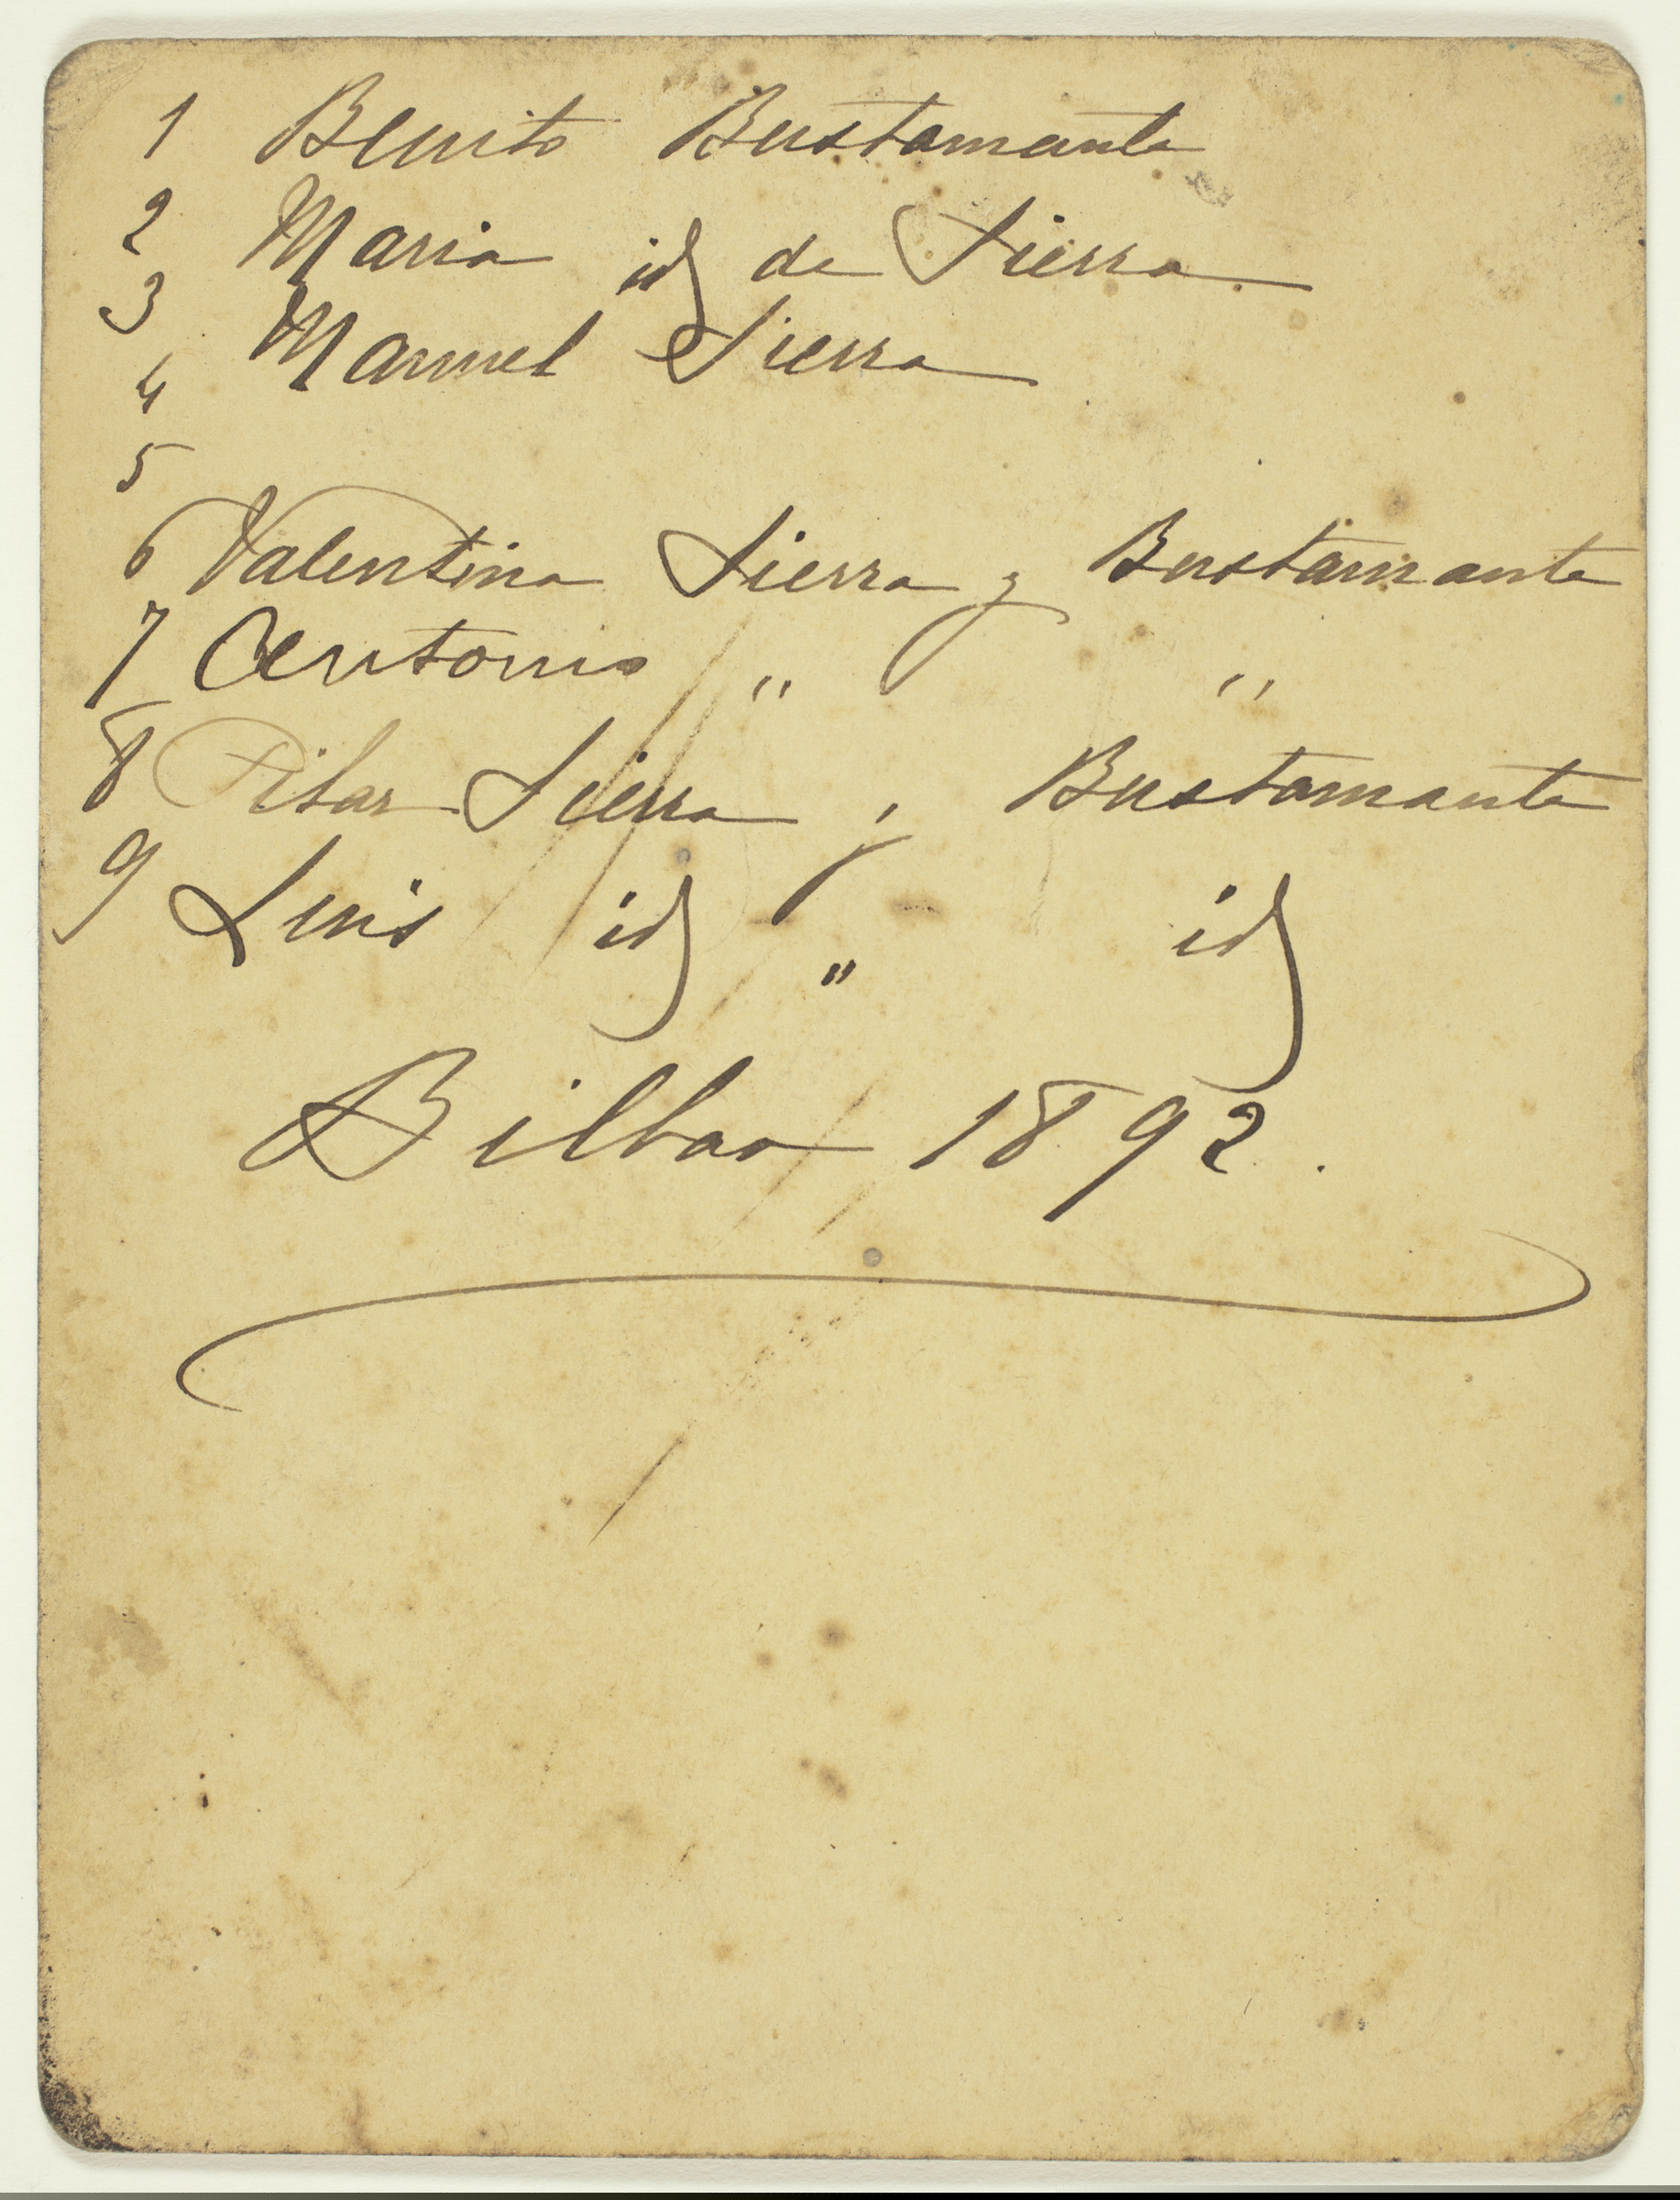 1 Benito Bustamante
2 Maria id de Sierra
3 Manuel Sierra
4
5
6 Valentina Sierra y Bustamante
7 Antonio " "
8 Pilar Sierra y Bustamante
9 Luis id " id
Bilbao 1892.